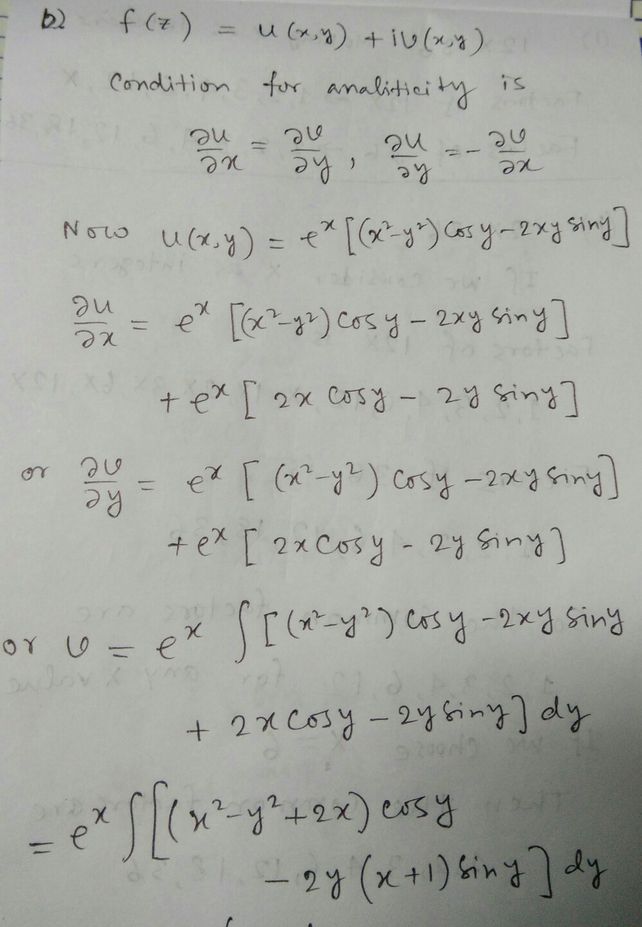 b) f(z) = u(x,y) + iv(x,y)
Condition for analiticity is
∂u/∂x = ∂v/∂y , ∂u/∂y = - ∂v/∂x
Now u(x,y) = e^x [(x²-y²) cos y - 2xy sin y]
∂u/∂x = e^x [(x²-y²) cos y - 2xy sin y]
+ e^x [ 2x cos y - 2y sin y]
or ∂v/∂y = e^x [ (x²-y²) cos y - 2xy sin y]
+ e^x [ 2x cos y - 2y sin y]
or v = e^x ∫ [ (x²-y²) cos y - 2xy sin y
+ 2x cos y - 2y sin y] dy
= e^x ∫ [ (x²-y²+2x) cos y
- 2y (x+1) sin y ] dy